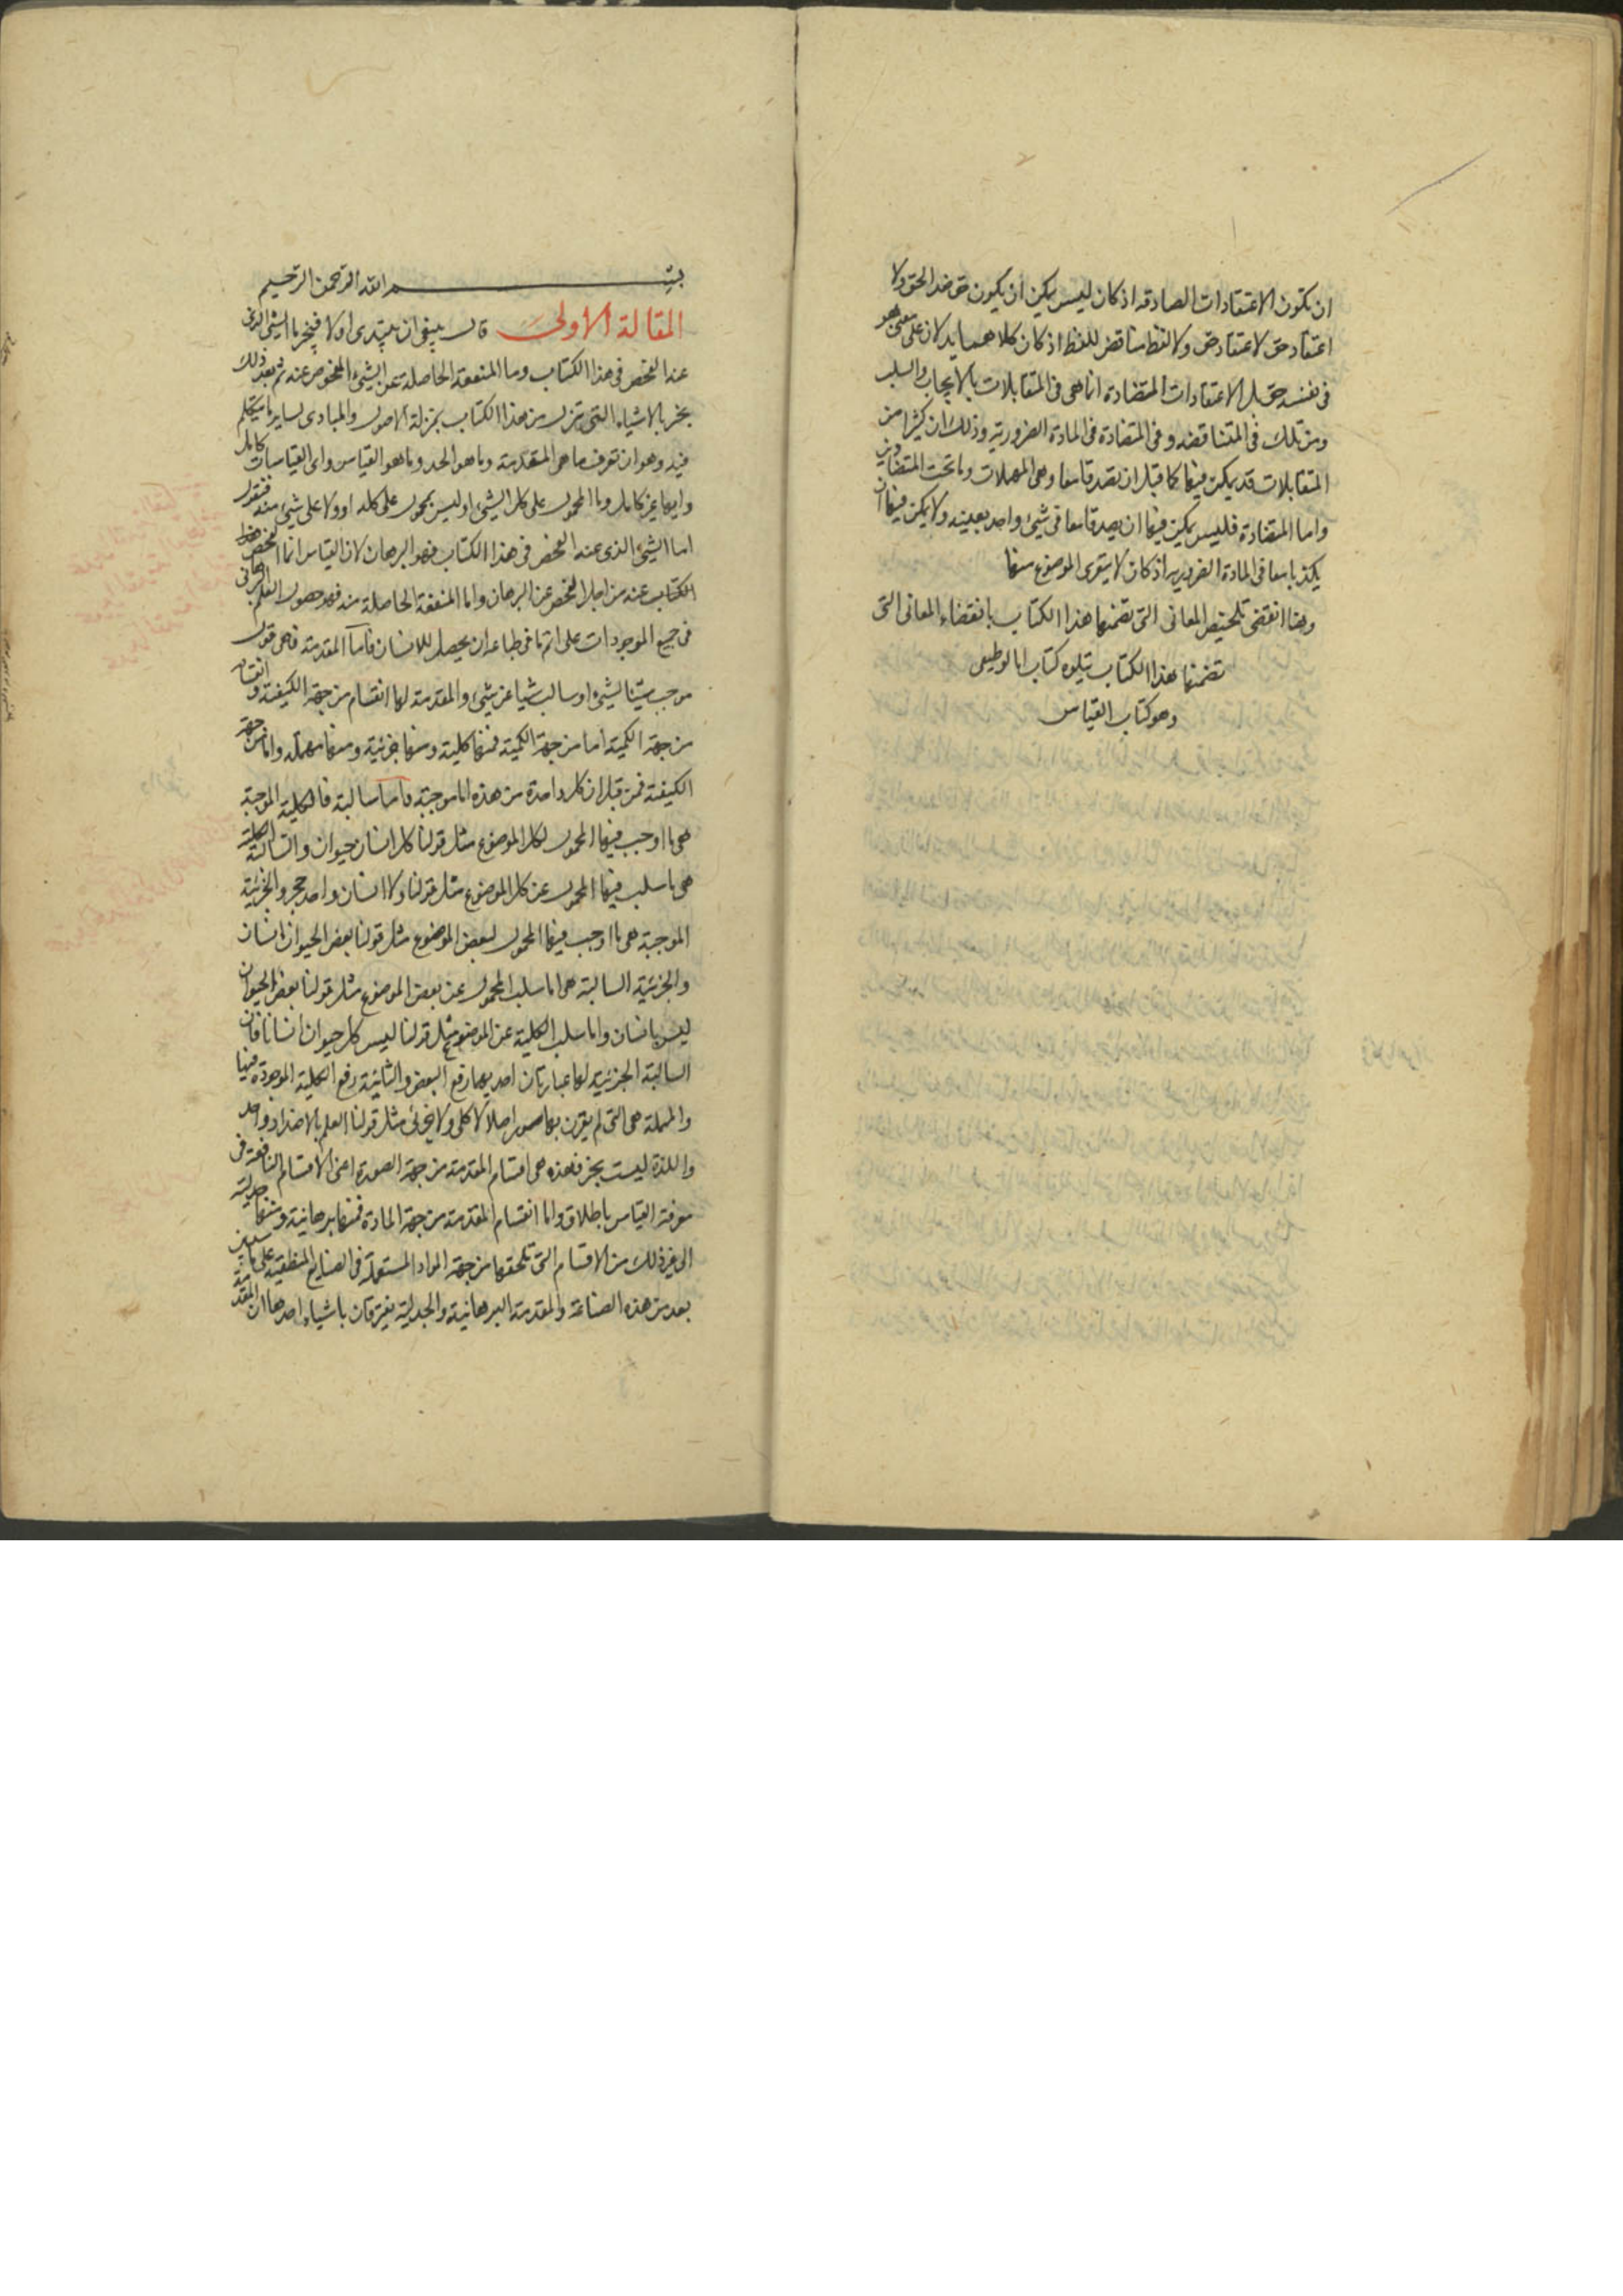 ان تكون الاعتقادات الصادقه اذ كان ليس يمكن ان يكون حق ضد الحق ولا
اعتقاد حق لاعتقاد حق ولا لفظ مناقض للفظ اذ كان كلاهما يدلان على معنى هو
فى نفسه حق بل الاعتقادات المتضادة انما هى فى المتقابلات بالايجاب والسلب
ومن تلك فى المتناقضه وفى المتضادة فى المادة الضرورية وذلك ان كثيرا من
المتقابلات قد يمكن فيها كما قيل ان تصدقا معا وهى المهملات وما تحت المتضادين
واما المتضادة فليس يمكن فيها ان يصدقا معا فى شىء واحد بعينه ولا يمكن فيها ان
يكذبا معا فى المادة الضروريه اذ كان لا يتعرى الموضوع منها
وهنا انقضى تلخيص المعانى التى تضمنها هذا الكتاب بانقضاء المعانى التى
تضمنها هذا الكتاب يتلوه كتاب انالوطيقى
وهو كتاب القياس
بسم الله الرحمن الرحيم
المقالة الاولى قال ينبغى ان يبتدى اولا فيخبر ما الشىء الذى
عنه الفحص فى هذا الكتاب وما المنفعة الحاصلة عن الشىء المفحوص عنه ثم بعد ذلك
يخبر بالاشياء التى تنزل من هذا الكتاب بمنزلة الاصول والمبادى لساير ما يتكلم
فيه وهو ان تعرف ما هى المقدمة وما هو الحد وما هو القياس واى القياسات كامل
وايها غير كامل وما المحمول على كل الشىء او ليس بمحمول على كله او ولا على شىء منه فنقول
اما الشىء الذى عنه الفحص فى هذا الكتاب فهو البرهان لان القياس انما الفحص هذا
الكتاب عنه من اجل الفحص عن البرهان واما المنفعة الحاصلة منه فهو حصول العلم البرهانى
فى جميع الموجودات على اتم ما فى طباعه ان يحصل للانسان فاما المقدمة فهى قول
موجب شيئا لشىء او سالب شيا عن شىء والمقدمة لها انقسام من جهة الكيفية وانقسام
من جهة الكمية اما من جهة الكمية فمنها كلية ومنها جزئية ومنها مهملة واما من جهة
الكيفية فمن قبل ان كل واحدة من هذه اما موجبة واما سالبة فالكلية الموجبة
هى ما اوجب فيها المحمول لكل الموضوع مثل قولنا كل انسان حيوان والسالبة الكلية
هى ما سلب فيها المحمول عن كل الموضوع مثل قولنا ولا انسان واحد حجر والجزئية
الموجبة هى ما اوجب فيها المحمول لبعض الموضوع مثل قولنا بعض الحيوان انسان
والجزئية السالبة هى اما سلب المحمول عن بعض الموضوع مثل قولنا بعض الحيوان
ليس بانسان واما سلب الكلية عن الموضوع مثل قولنا ليس كل حيوان انسانا فان
السالبة الجزئية لها عبارتان احديهما رفع البعض والثانية رفع الكلية الموجودة فيها
والمهملة هى التى لم يقرن بها سور اصلا لا كلى ولا جزئى مثل قولنا العلم بالاضداد واحد
واللذة ليست بخير فهذه هى اقسام المقدمة من جهة الصورة اعنى الاقسام النافعة فى
معرفة القياس باطلاق واما انقسام المقدمة من جهة المادة فمنها برهانية ومنها جدلية
الى غير ذلك من الاقسام التى تلحقها من جهة المواد المستعملة فى الصنايع المنطقية على ما سيبين
بعد من هذه الصناعة والمقدمة البرهانية والجدلية يفترقان باشياء احدها ان المقدمة